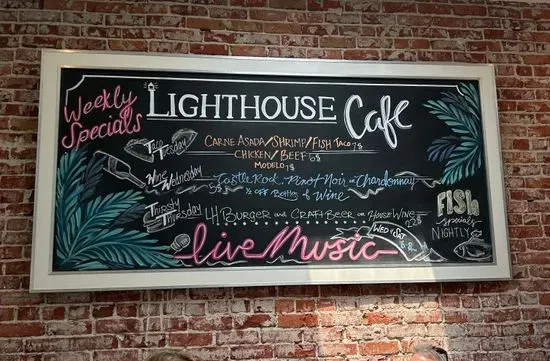 Weekly
Specials
LIGHTHOUSE Cafe
Taco Tuesday
CARNE ASADA/SHRIMP/FISH TACO 7$
CHICKEN/BEEF 6$
MODELO 7$
Wine Wednesday
Castle Rock Pinot Noir or Chardonnay
½ OFF Bottles of Wine
Thirsty Thursday
LH BURGER AND CRAFT BEER OR HOUSE WINE 22$
FISH
specials
NIGHTLY
live Music
WED - SAT
6-8